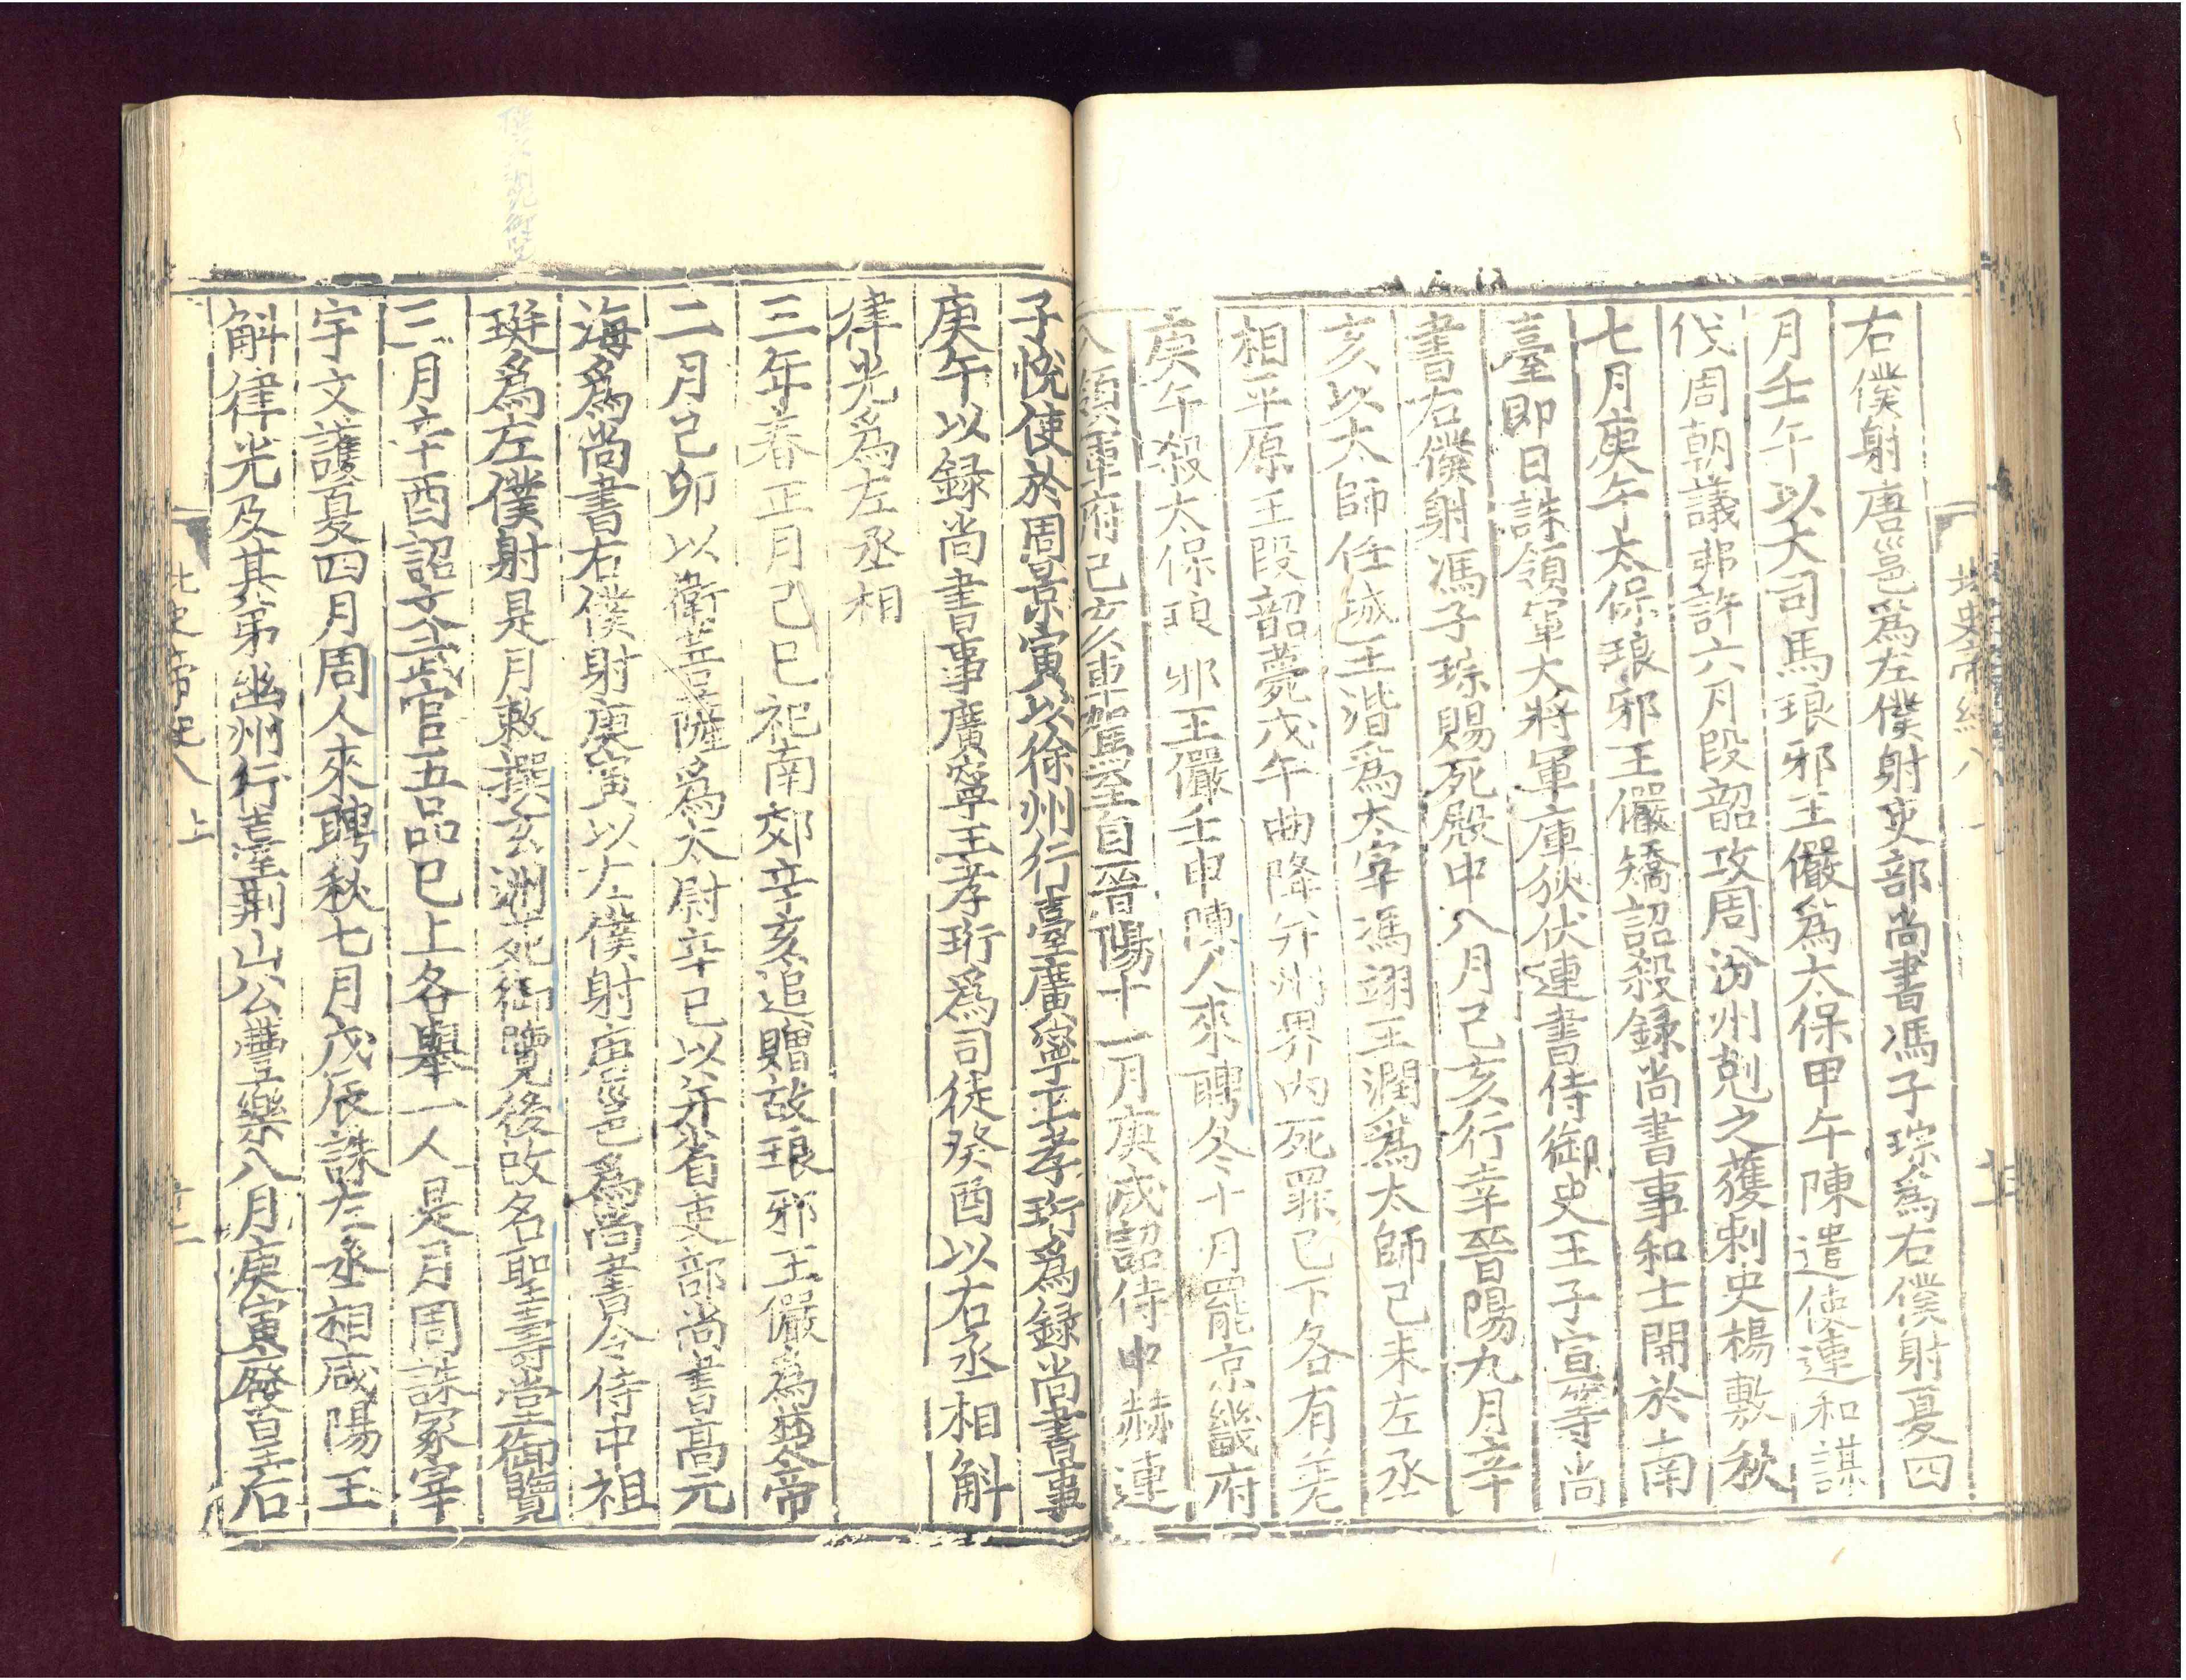 右僕射唐邕爲左僕射吏部尚書馮子琮爲右僕射夏四
月壬午以大司馬琅邪王儼爲太保甲午陳遣使連和謀
伐周朝議弗許六月段韶攻周汾州剋之獲刺史楊敷秋
七月庚午太保琅邪王儼矯詔殺錄尚書事和士開於南
臺即日誅領軍大將軍庫狄伏連書侍御史王子宣等尚
書右僕射馮子琮賜死殿中八月己亥行幸晉陽九月辛
亥以太師任城王湝爲太宰馮翊王潤爲太師己未左丞
相平原王段韶薨戊午曲降幷州界內死罪已下各有差
庚午殺太保琅邪王儼壬申陳人來聘冬十月罷京畿府
入領軍府己亥車駕至自晉陽十一月庚戌詔侍中赫連
子悅使於周景寅以徐州行臺廣寧王孝珩爲錄尚書事
庚午以錄尚書事廣寧王孝珩爲司徒癸酉以右丞相斛
律光爲左丞相
三年春正月己巳祀南郊辛亥追贈故琅邪王儼爲楚帝
二月己卯以衛菩薩爲太尉辛巳以幷省吏部尚書高元
海爲尚書右僕射庚寅以左僕射唐邕爲尚書令侍中祖
珽爲左僕射是月敕撰玄洲苑御覽後改名聖壽堂御覽
三月辛酉詔文武官五品已上各舉一人是月周誅冢宰
宇文護夏四月周人來聘秋七月戊辰誅左丞相咸陽王
斛律光及其弟幽州行臺荊山公豐樂八月庚寅廢皇后
北史帝紀八 上